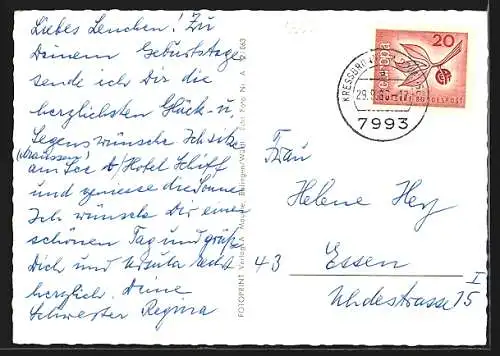 Liebes Lenchen! Zu
Deinem Geburtstage
sende ich Dir die
herzlichsten Glück- u.
Segenswünsche Ich sitze
(draussen)
am See Hotel Schiff
und geniesse die Sonne
Ich wünsche Dir einen
schönen Tag und grüße
Dich und Ursula recht
herzlich. Deine
Schwester Regina
FOTOPRINT Verlag
Echt Foto Nr. A
20
europa
BUNDESPOST
KRESSBRONN
29.9.
7993
Frau
Helene Hey
43 Essen
Uhdestrasse 15
I